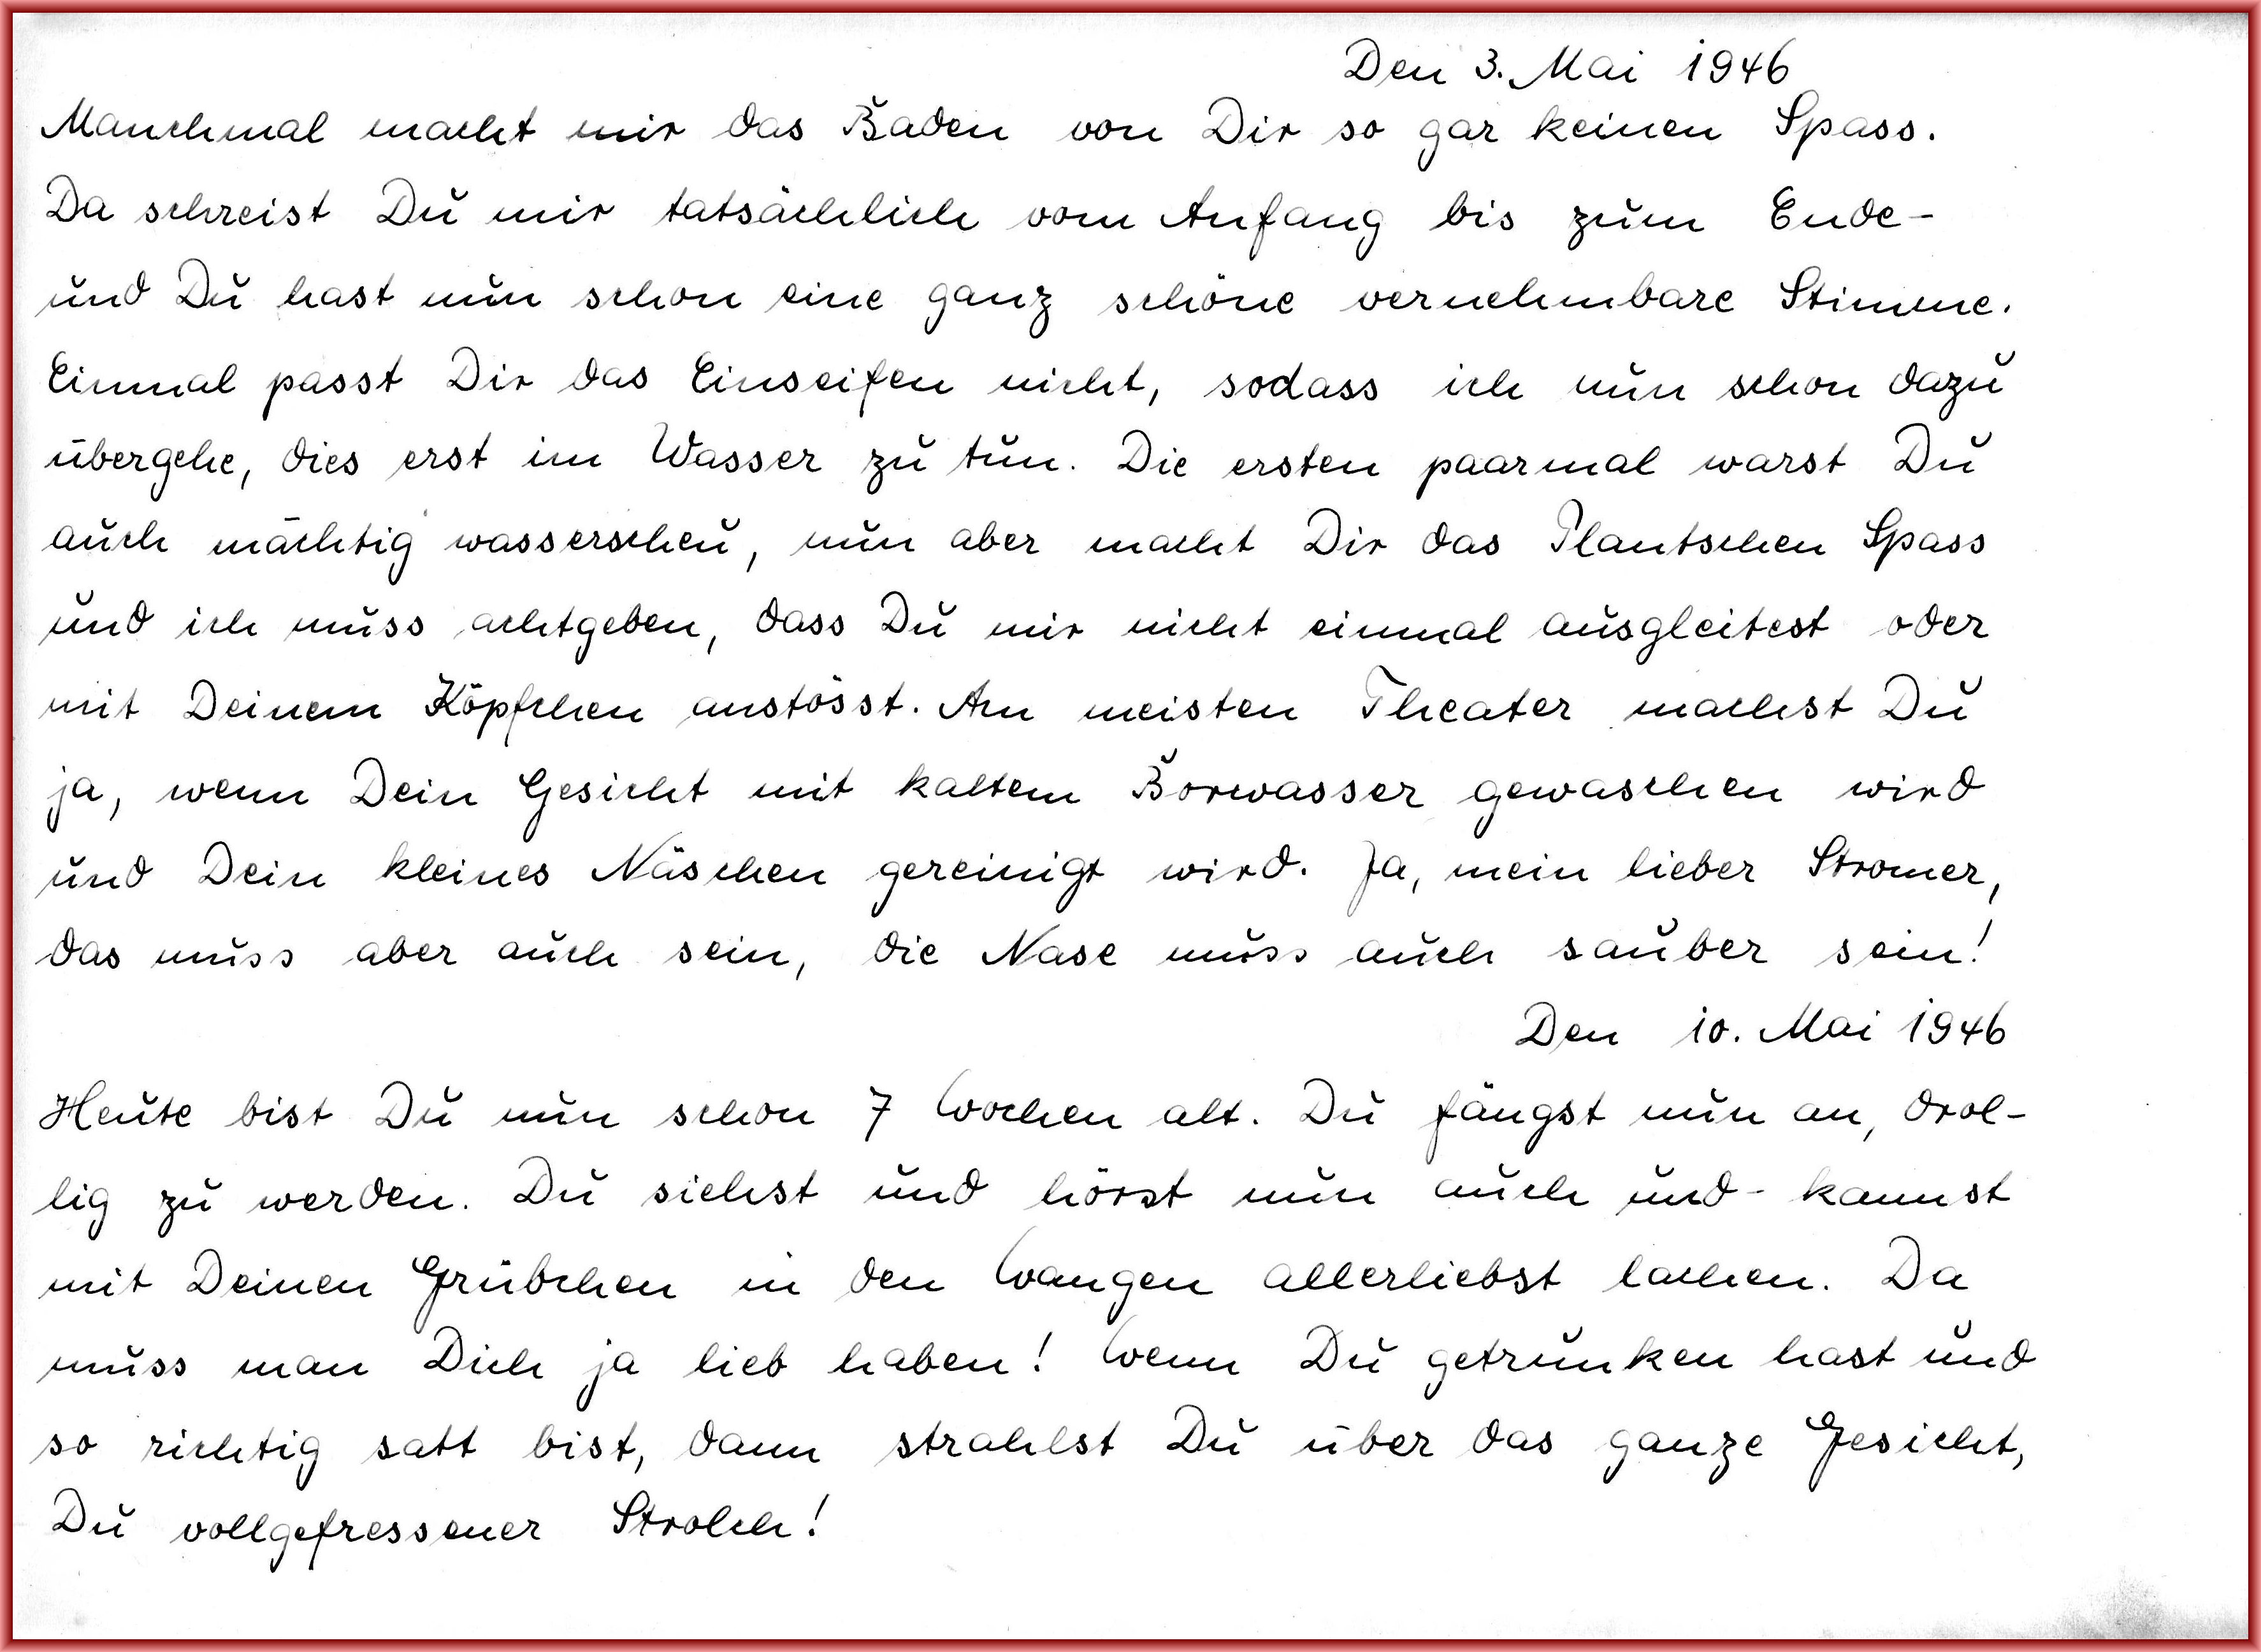 Den 3. Mai 1946
Manchmal macht mir das Baden von Dir so gar keinen Spass.
Da schreist Du mir tatsächlich vom Anfang bis zum Ende-
und Du hast nun schon eine ganz schöne vernehmbare Stimme.
Einmal passt Dir das Einseifen nicht, sodass ich nun schon dazu
übergehe, dies erst im Wasser zu tun. Die ersten paarmal warst Du
auch mächtig wasserscheu, nun aber macht Dir das Plantschen Spass
und ich muss achtgeben, dass Du mir nicht einmal ausgleitest oder
mit Deinem Köpfchen anstösst. Am meisten Theater machst Du
ja, wenn Dein Gesicht mit kaltem Borwasser gewaschen wird
und Dein kleines Näschen gereinigt wird. Ja, mein lieber Stromer,
das muss aber auch sein, die Nase muss auch sauber sein!
Den 10. Mai 1946
Heute bist Du nun schon 7 Wochen alt. Du fängst nun an, drol-
lig zu werden. Du siehst und hörst nun auch und - kannst
mit Deinen Grübchen in den Wangen allerliebst lachen. Da
muss man Dich ja lieb haben! Wenn Du getrunken hast und
so richtig satt bist, dann strahlst Du über das ganze Gesicht,
Du vollgefressener Strolch!